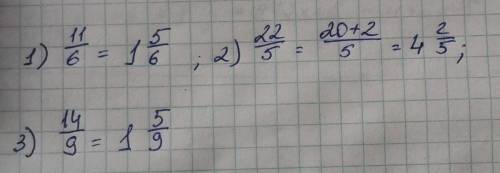 1) 11/6 = 1 5/6 ; 2) 22/5 = 20+2/5 = 4 2/5;
3) 14/9 = 1 5/9